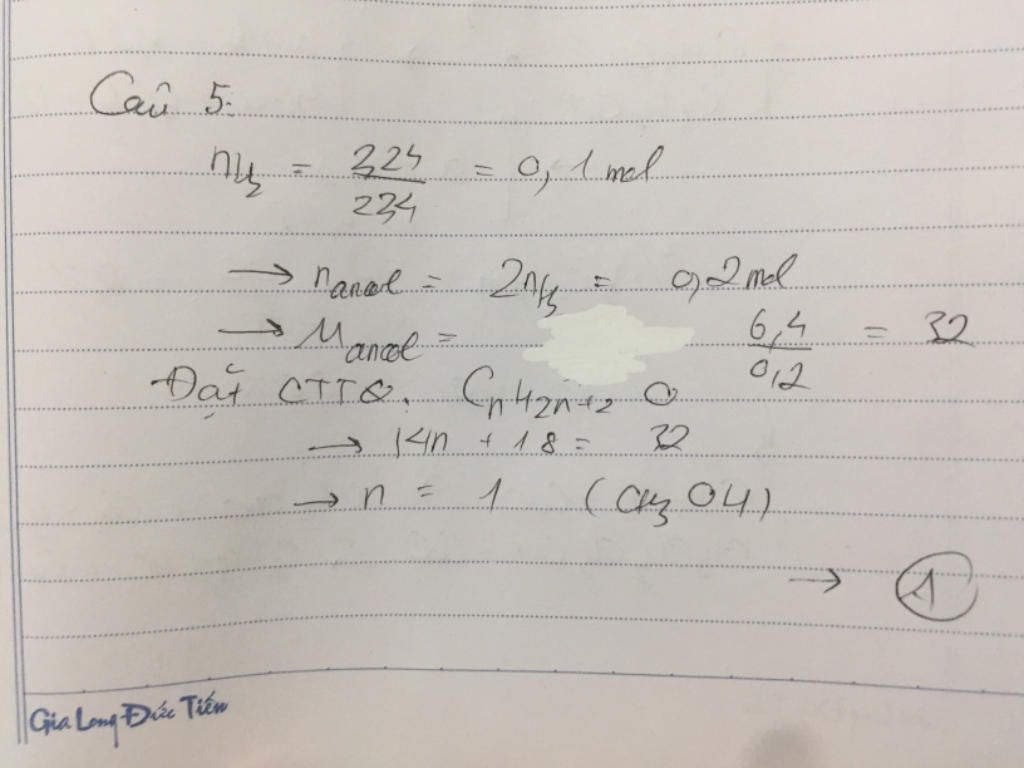 Câu 5:
nH₂ = 2,24 / 22,4 = 0,1 mol
→ nancol = 2nH₂ = 0,2 mol
→ Mancol = 6,4 / 0,2 = 32
Đặt CTTQ. CnH2n+2 O
→ 14n + 18 = 32
→ n = 1 (CH₃OH)
→ A
Gia Long Đức Tiến